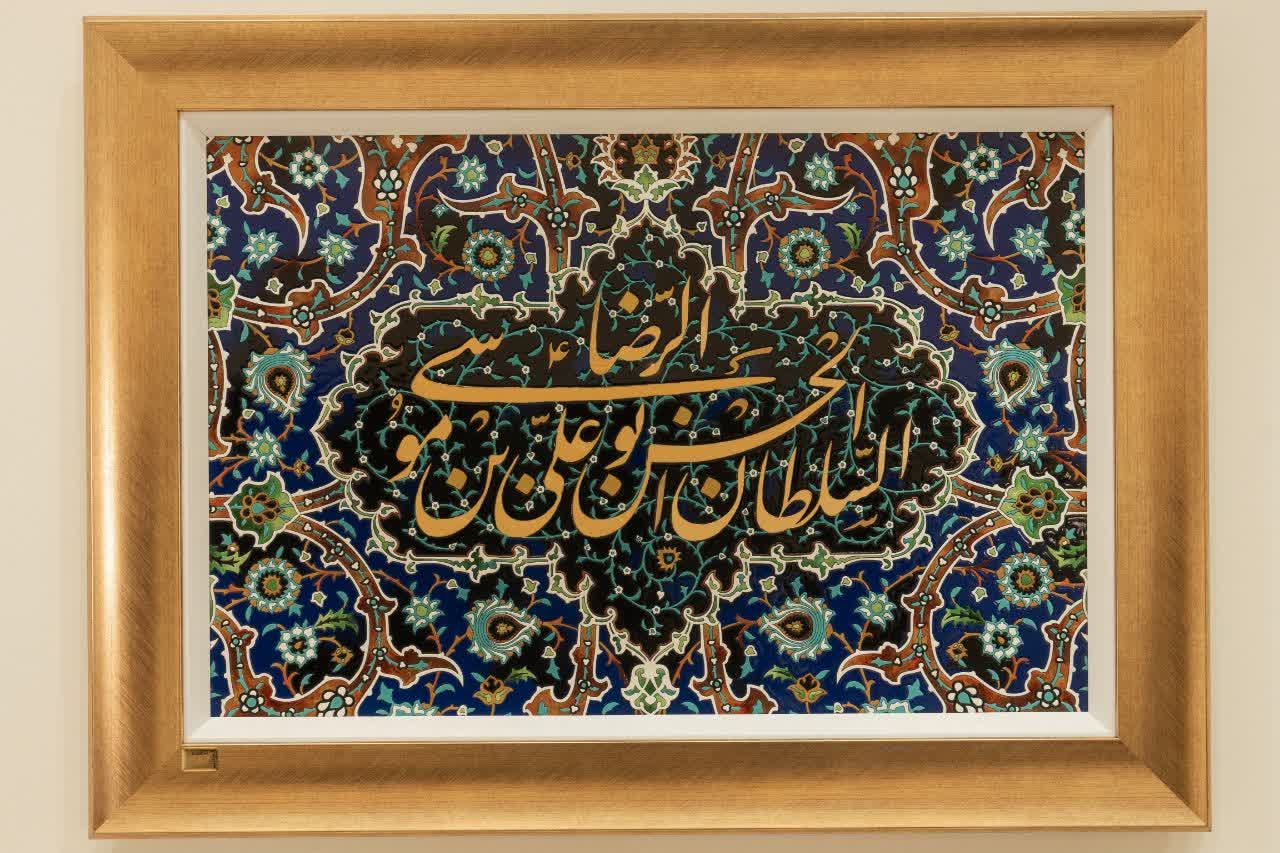 السّلطان ابوالحسن علیّ بن مُوسی
الرّضا ع